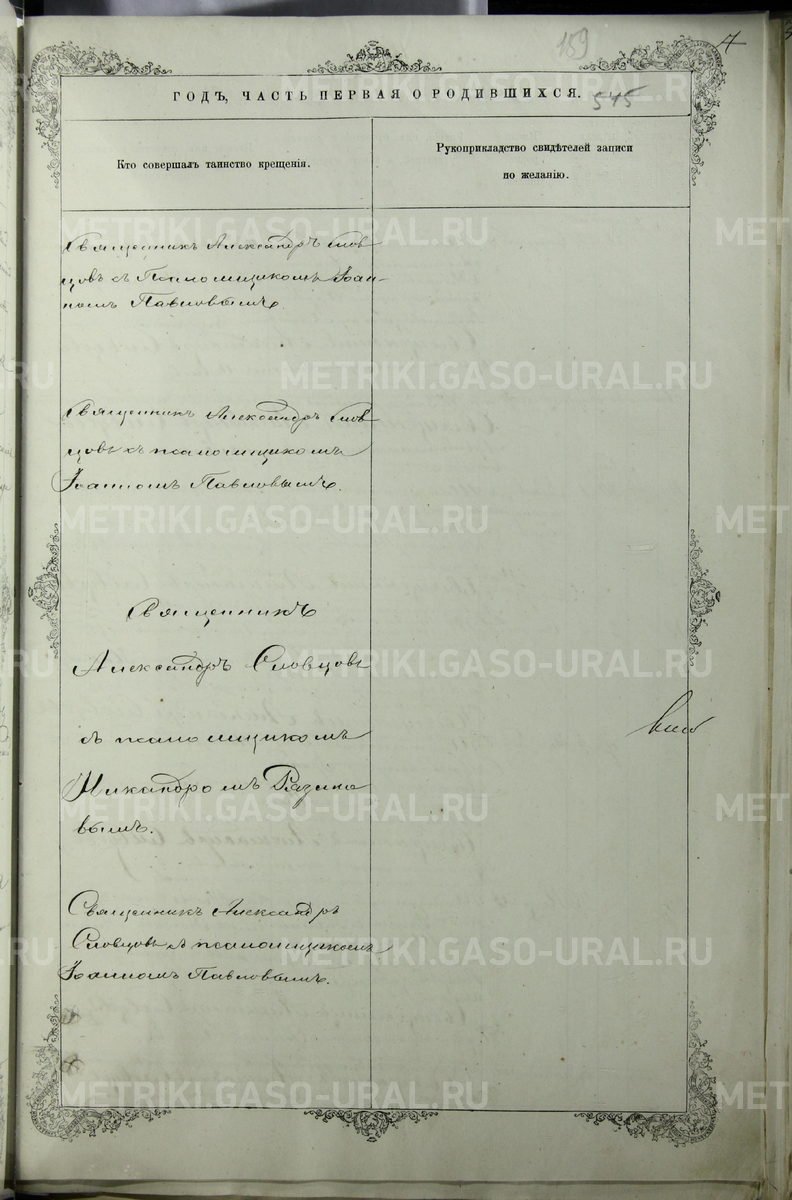 159
545
ГОДЪ, ЧАСТЬ ПЕРВАЯ О РОДИВШИХСЯ.
Кто совершалъ таинство крещенія.
Рукоприкладство свидѣтелей записи
по желанію.
Священникъ Александръ Слов
цовъ съ Псаломщикомъ Іоан-
номъ Павловымъ.
Священникъ Александръ Слов
цовъ съ псаломщикомъ
Іоанномъ Павловымъ.
Священникъ
Александръ Словцовъ
съ псаломщикомъ
Никандромъ
вымъ.
Священникъ Александръ
Словцовъ съ псаломщикомъ
Іоанномъ Павловымъ.
METRIKI.GASO-URAL.RU